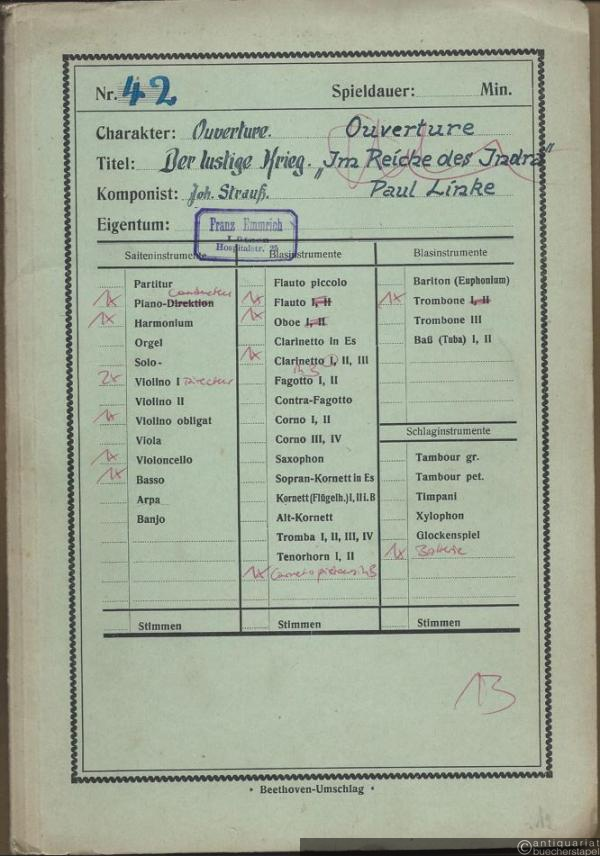 Nr. 42 Spieldauer: Min.
Charakter: Ouverture. Ouverture
Titel: Der lustige Krieg. „Im Reiche des Indra"
Komponist: Joh. Strauß. Paul Linke
Eigentum: Franz Emmrich
Hospitalstr. 25
Saiteninstrumente
Partitur
Conducteur
1x Piano-Direktion
1x Harmonium
Orgel
Solo-
2x Violino I Directeur
Violino II
1x Violino obligat
Viola
1x Violoncello
1x Basso
Arpa
Banjo
Stimmen
Blasinstrumente
Flauto piccolo
1x Flauto I, II
1x Oboe I, II
Clarinetto in Es
1x Clarinetto I, II, III
in B
Fagotto I, II
Contra-Fagotto
Corno I, II
Corno III, IV
Saxophon
Sopran-Kornett in Es
Kornett (Flügelh.) I, II i. B
Alt-Kornett
Tromba I, II, III, IV
Tenorhorn I, II
1x in B
Stimmen
Blasinstrumente
Bariton (Euphonium)
1x Trombone I, II
Trombone III
Baß (Tuba) I, II
Schlaginstrumente
Tambour gr.
Tambour pet.
Timpani
Xylophon
Glockenspiel
1x Batterie
Stimmen
13
• Beethoven-Umschlag •
antiquariat
buecherstapel